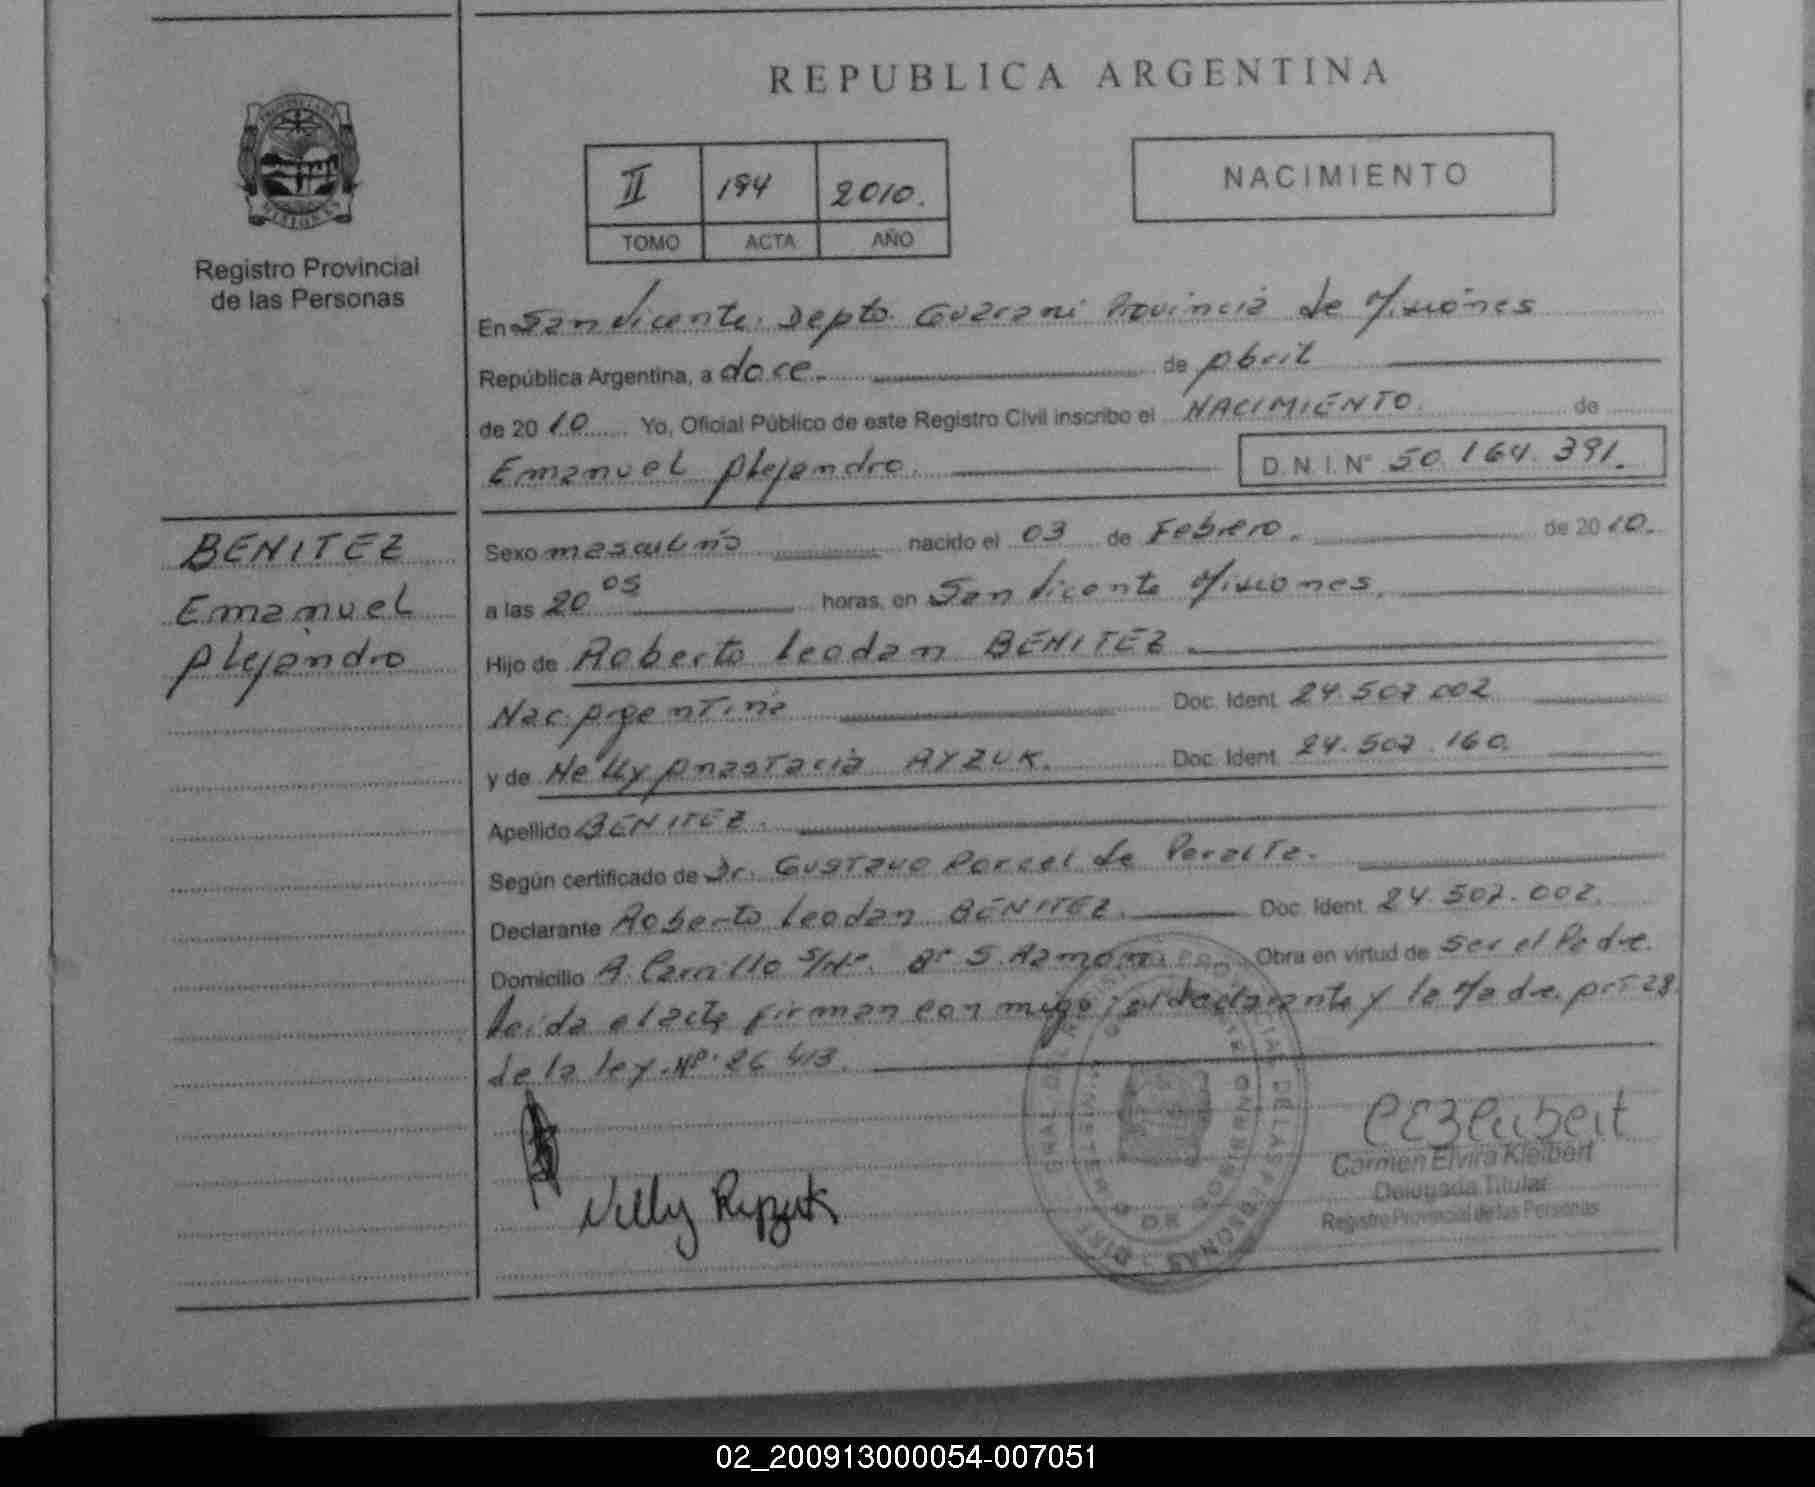 REPUBLICA ARGENTINA
II 194 2010.
TOMO ACTA AÑO
NACIMIENTO
MISIONES
Registro Provincial
de las Personas
BENITEZ
Emanuel
Alejandro
En San Vicente. Depto. Guarani Provincia de Misiones
República Argentina, a doce. de Abril
de 2010 Yo, Oficial Público de este Registro Civil inscribo el NACIMIENTO. de
Emanuel Alejandro. D.N.I. Nº 50.164.391.
Sexo masculino nacido el 03 de Febrero. de 2010.
a las 20 05 horas, en San Vicente Misiones.
Hijo de Roberto Leodan BENITEZ.
Nac. Argentina Doc. Ident. 24.507.002
y de Nelly Anastacia RYZUK. Doc. Ident. 24.507.160.
Apellido BENITEZ.
Según certificado de Dr. Gustavo Porcel de Peralta.
Declarante Roberto Leodan BENITEZ. Doc. Ident. 24.507.002.
Domicilio R. Carrillo S/Nº. Bº S. Ramon Obra en virtud de ser el Padre.
Leida el acta firman con migo; el declarante y la Madre. Art 28.
de la ley. Nº. 26.413.
Nelly Ryzuk
Carmen Elvira Kleibert
Delegada Titular
Registro Provincial de las Personas
02_200913000054-007051